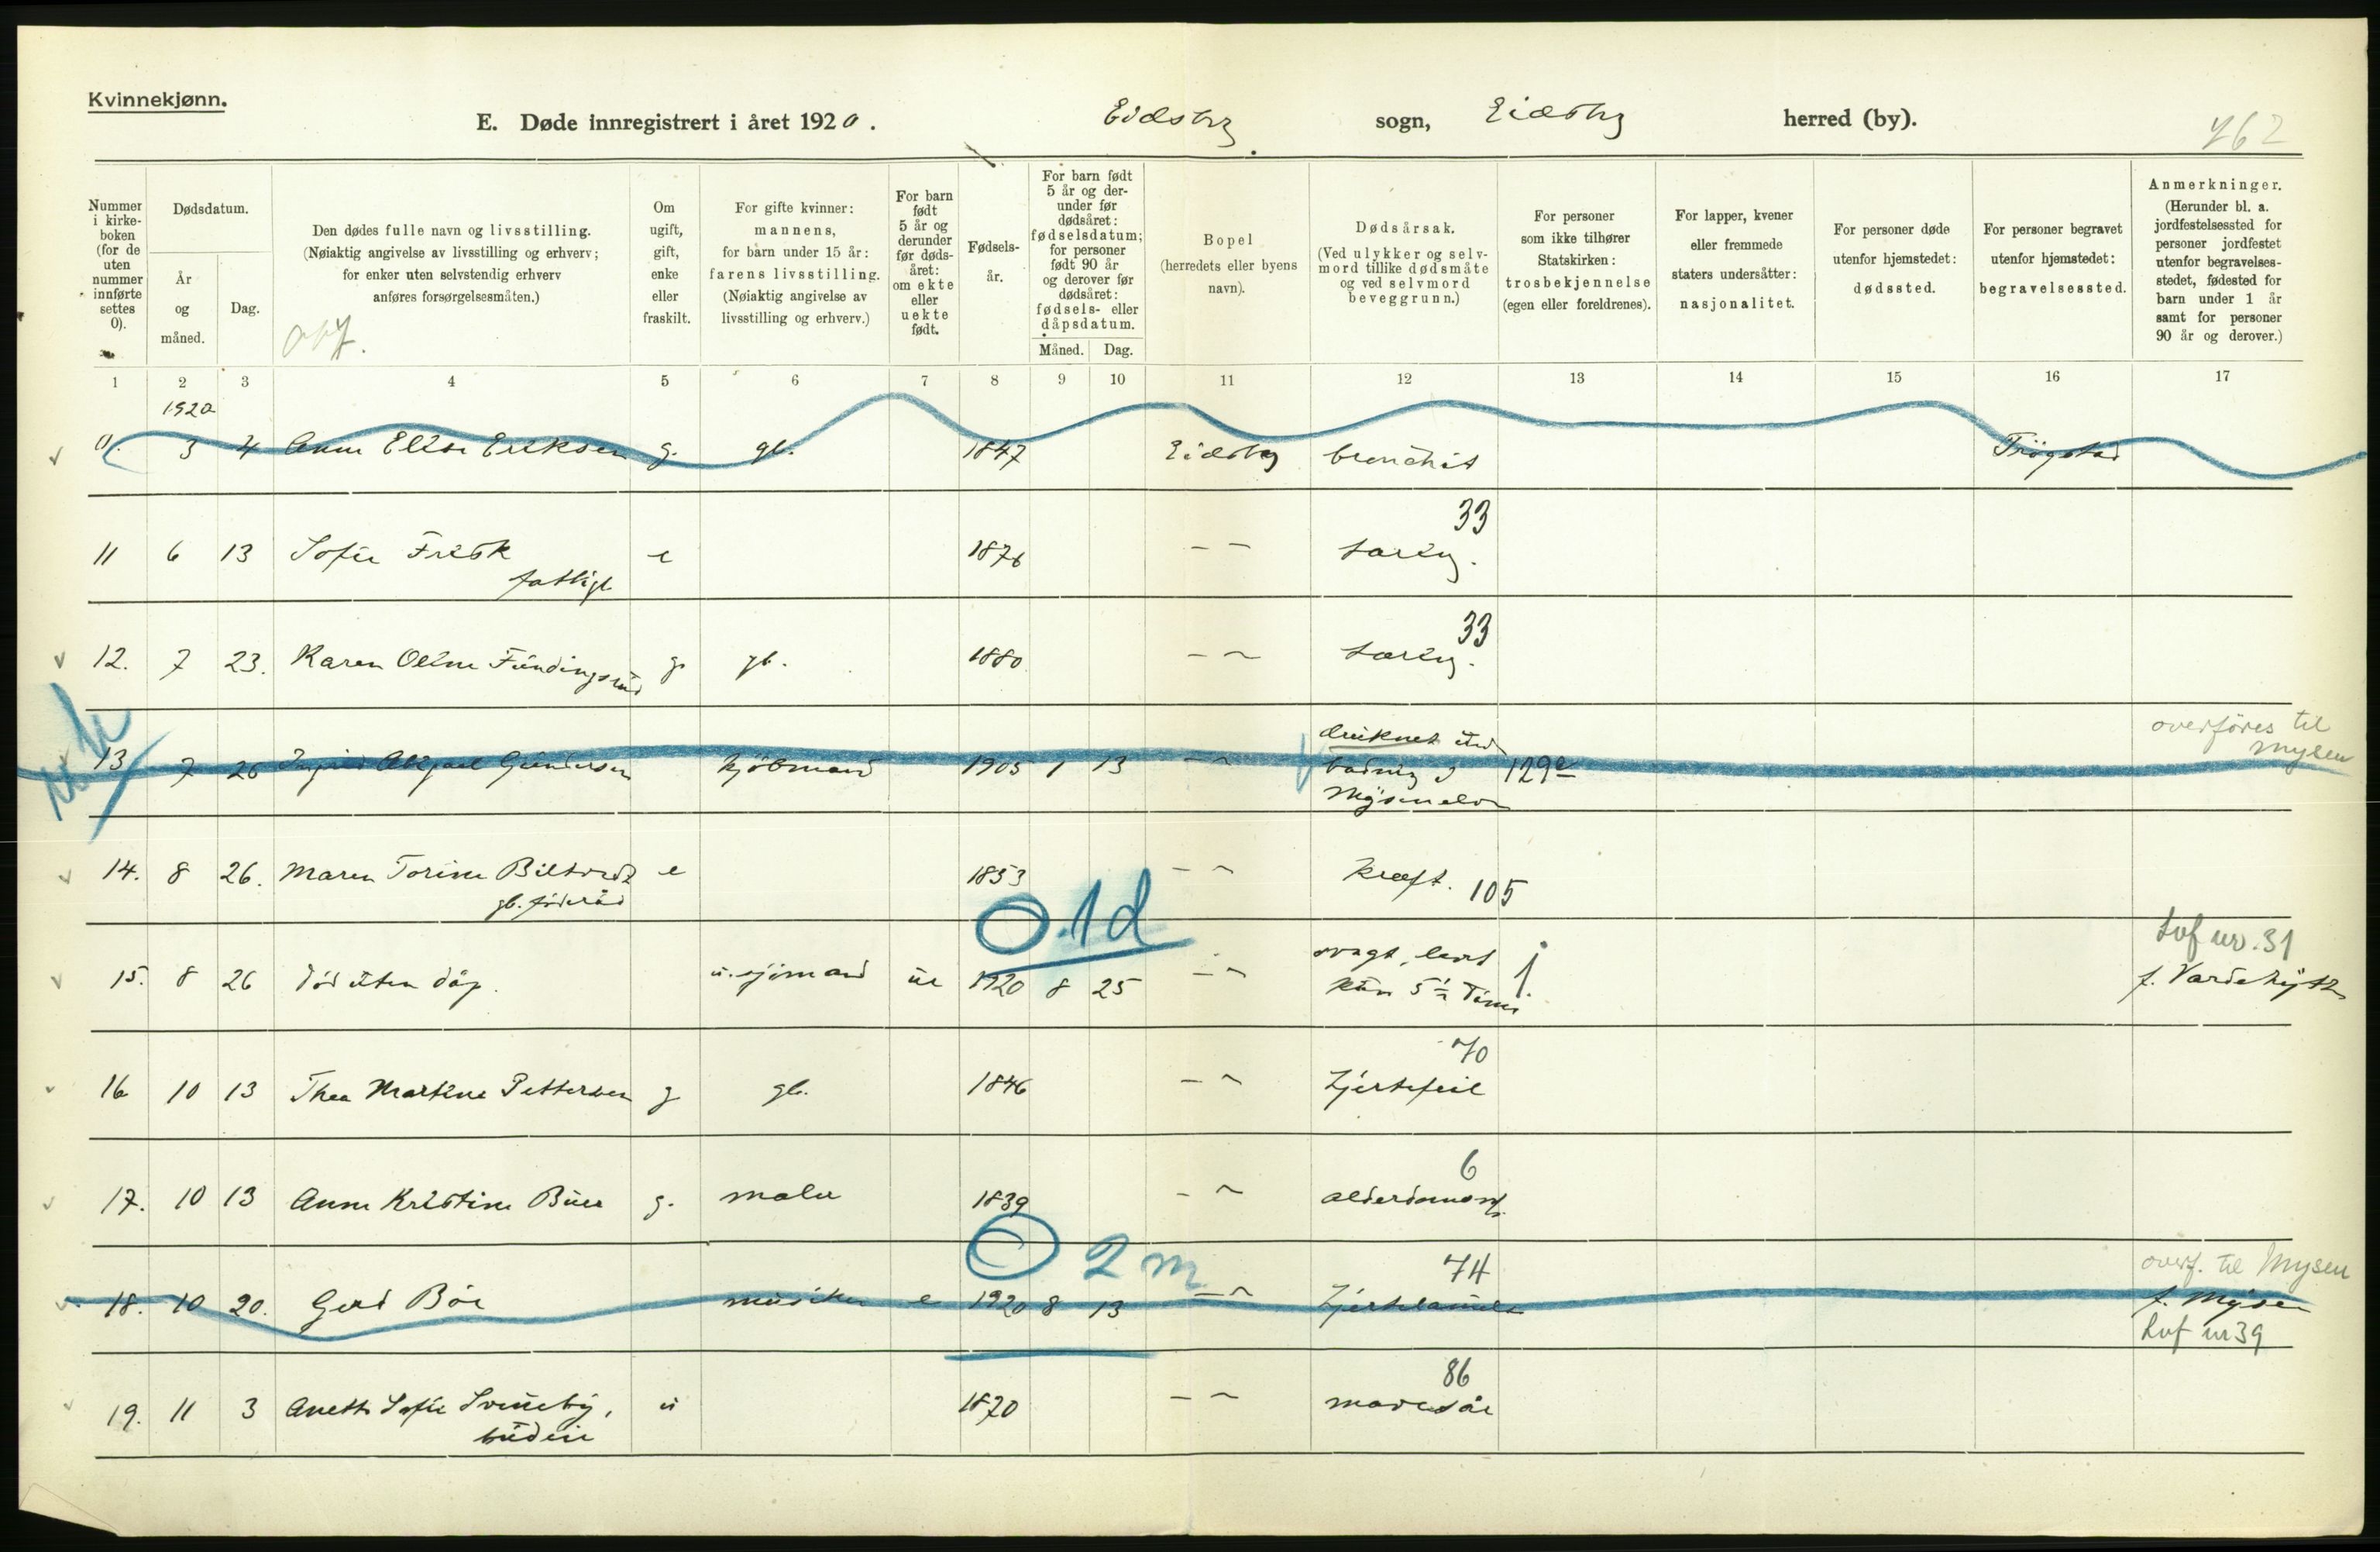 Kvinnekjønn.
E. Døde innregistrert i året 1920. Eidsbg sogn, Eidsbg herred (by).
762
Nummer i kirkeboken (for de uten nummer innførte settes 0).
Dødsdatum.
År og måned.
Dag.
Den dødes fulle navn og livsstilling.
(Nøiaktig angivelse av livsstilling og erhverv; for enker uten selvstendig erhverv anføres forsørgelsesmåten.)
Om ugift, gift, enke eller fraskilt.
For gifte kvinner: mannens, for barn under 15 år: farens livsstilling.
(Nøiaktig angivelse av livsstilling og erhverv.)
For barn født 5 år og derunder før dødsåret: om ekte eller uekte født.
Fødselsår.
For barn født 5 år og derunder før dødsåret: fødselsdatum; for personer født 90 år og derover før dødsåret: fødsels- eller dåpsdatum.
Måned. Dag.
Bopel (herredets eller byens navn).
Dødsårsak.
(Ved ulykker og selvmord tillike dødsmåte og ved selvmord beveggrunn.)
For personer som ikke tilhører Statskirken: trosbekjennelse (egen eller foreldrenes).
For lapper, kvener eller fremmede staters undersåtter: nasjonalitet.
For personer døde utenfor hjemstedet: dødssted.
For personer begravet utenfor hjemstedet: begravelsessted.
Anmerkninger.
(Herunder bl. a. jordfestelsessted for personer jordfestet utenfor begravelsesstedet, fødested for barn under 1 år samt for personer 90 år og derover.)
1 2 3 4 5 6 7 8 9 10 11 12 13 14 15 16 17
1920
0. 3 4 Anne Elise Eriksen g. gb. 1847 Eidsbg bronchit Trögstad
33
11 6 13 Sofie Frisk e 1876 — — tærkg.
fattigl.
33
12. 7 23. Karen Oline Fundingsrud g. gb. 1880 — — tærkg.
overföres til Mysen
druknet und
13 7 26 Ingrid Gundersen kjöbmand 1905 1 13 — — badning i 129e
Mysenelv
14. 8 26. Maren Torine e 1853 — — Kræft. 105
gb. föderåd
O. 1d
Lvf nr. 31
svagt, levet
15. 8 26 död uten dåp. u. sjömand ue 1920 8 25 — — kun 5 ½ Time
f. Vardehys
70
16 10 13 Thea Martine Pettersen g gb. 1846 — — Hjertefeil
6
17. 10 13 Anne Kristine Buer g. maler 1839 — — alderdomssv.
O 2 m
74
overf. til Mysen
18. 10 20. Gerd Böe musiker e 1920 8 13 — — Hjertelammelse f. Mysen
Lvf nr 39
86
19. 11 3 Anette Sofie Svineby, u 1870 — — mavesår
budeie